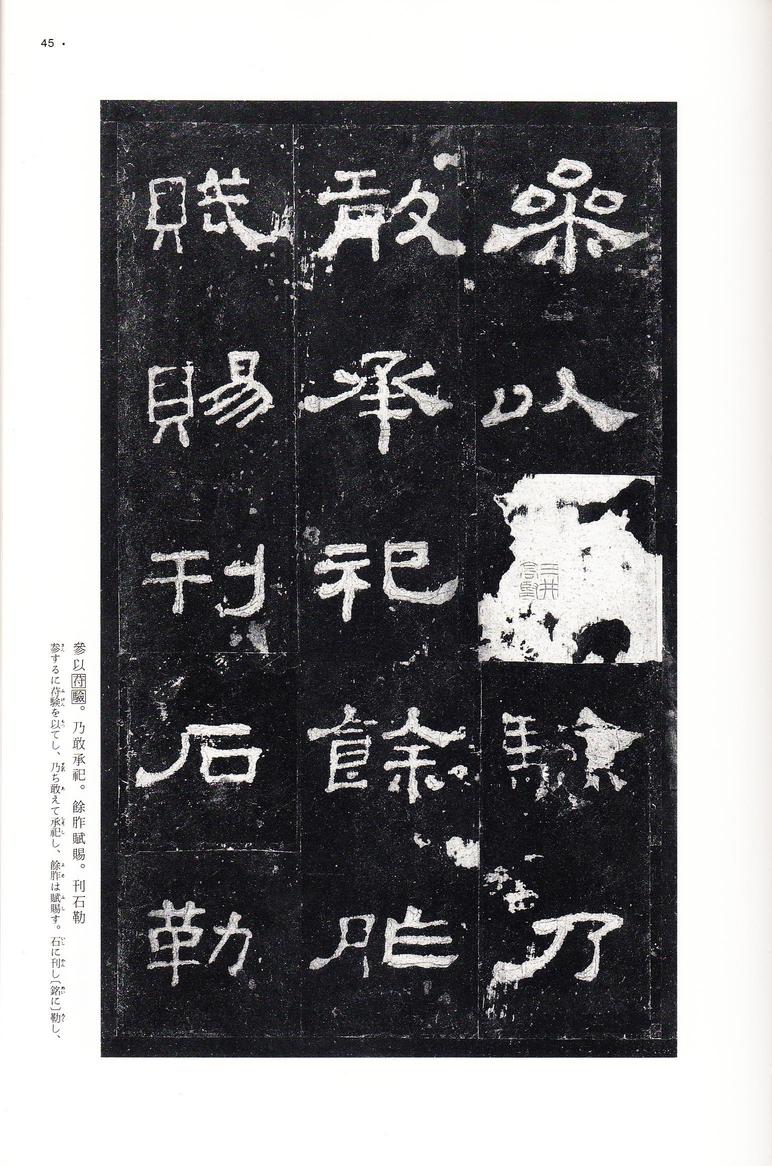 45・
參以
驗乃
敢承祀餘胙
賦賜刊石勒
三井
參以苻驗。乃敢承祀。餘胙賦賜。刊石勒
參するに苻験を以てし、乃ち敢えて承祀し、餘胙は賦賜す。石に刊し〔銘に〕勒し、